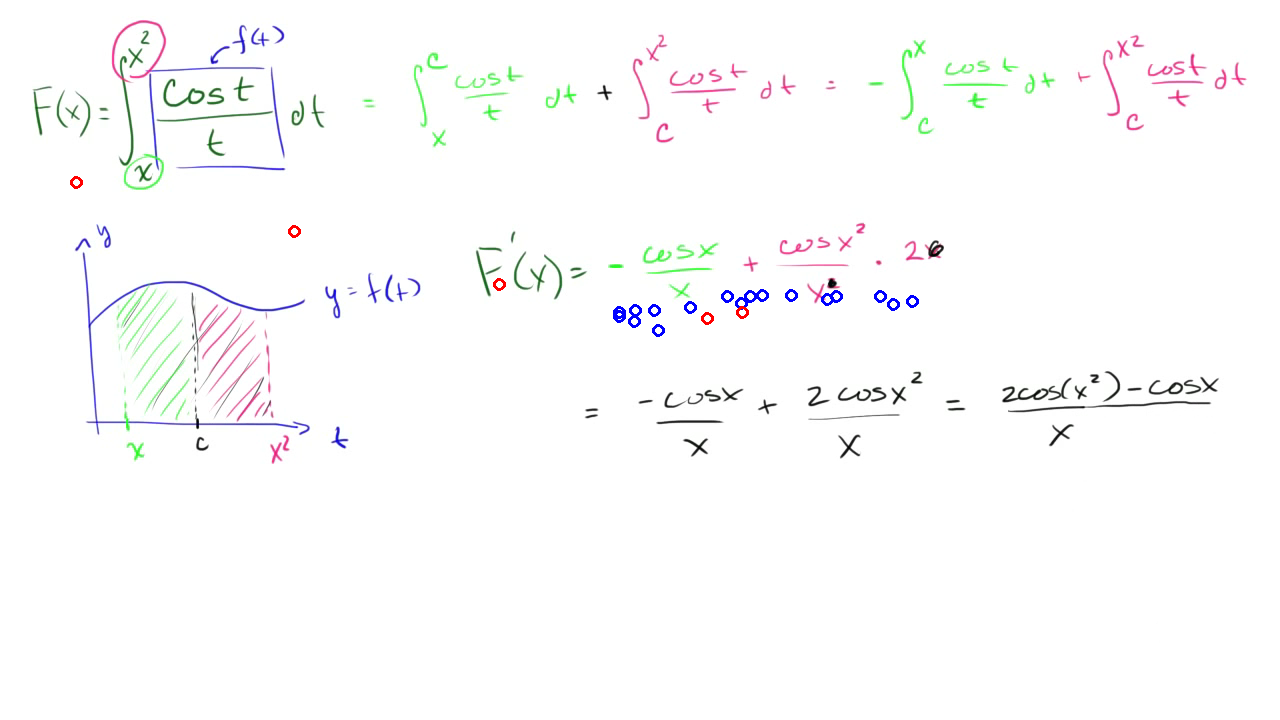 f(t)
F(x) = ∫_x^{x²} cos t / t dt = ∫_x^c cos t / t dt + ∫_c^{x²} cos t / t dt = - ∫_c^x cos t / t dt + ∫_c^{x²} cos t / t dt
y
y = f(t)
x c x² t
F'(x) = - cos x / x + cos x² / x · 2
= -cos x / x + 2 cos x² / x = 2cos(x²) - cos x / x